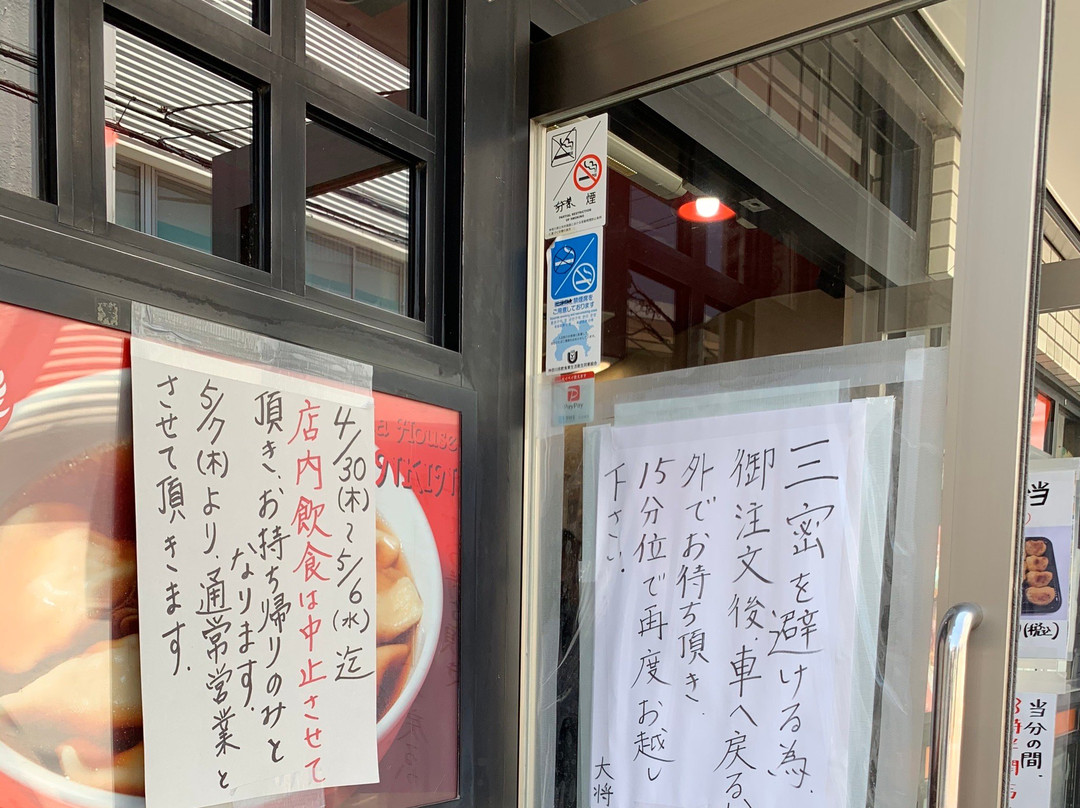 4/30(木)〜5/6(水)迄
店内飲食は中止させて
頂き、お持ち帰りのみと
なります。
5/7(木)より、通常営業と
させて頂きます。
a House
分煙
PARTIAL RESTRICTION OF SMOKING
喫煙席を
ご用意しております
PayPay
三密を避ける為、
御注文後、車へ戻るか
外でお待ち頂き、
15分位で再度お越し
下さい。
大将
当
(税込)
当分の間、